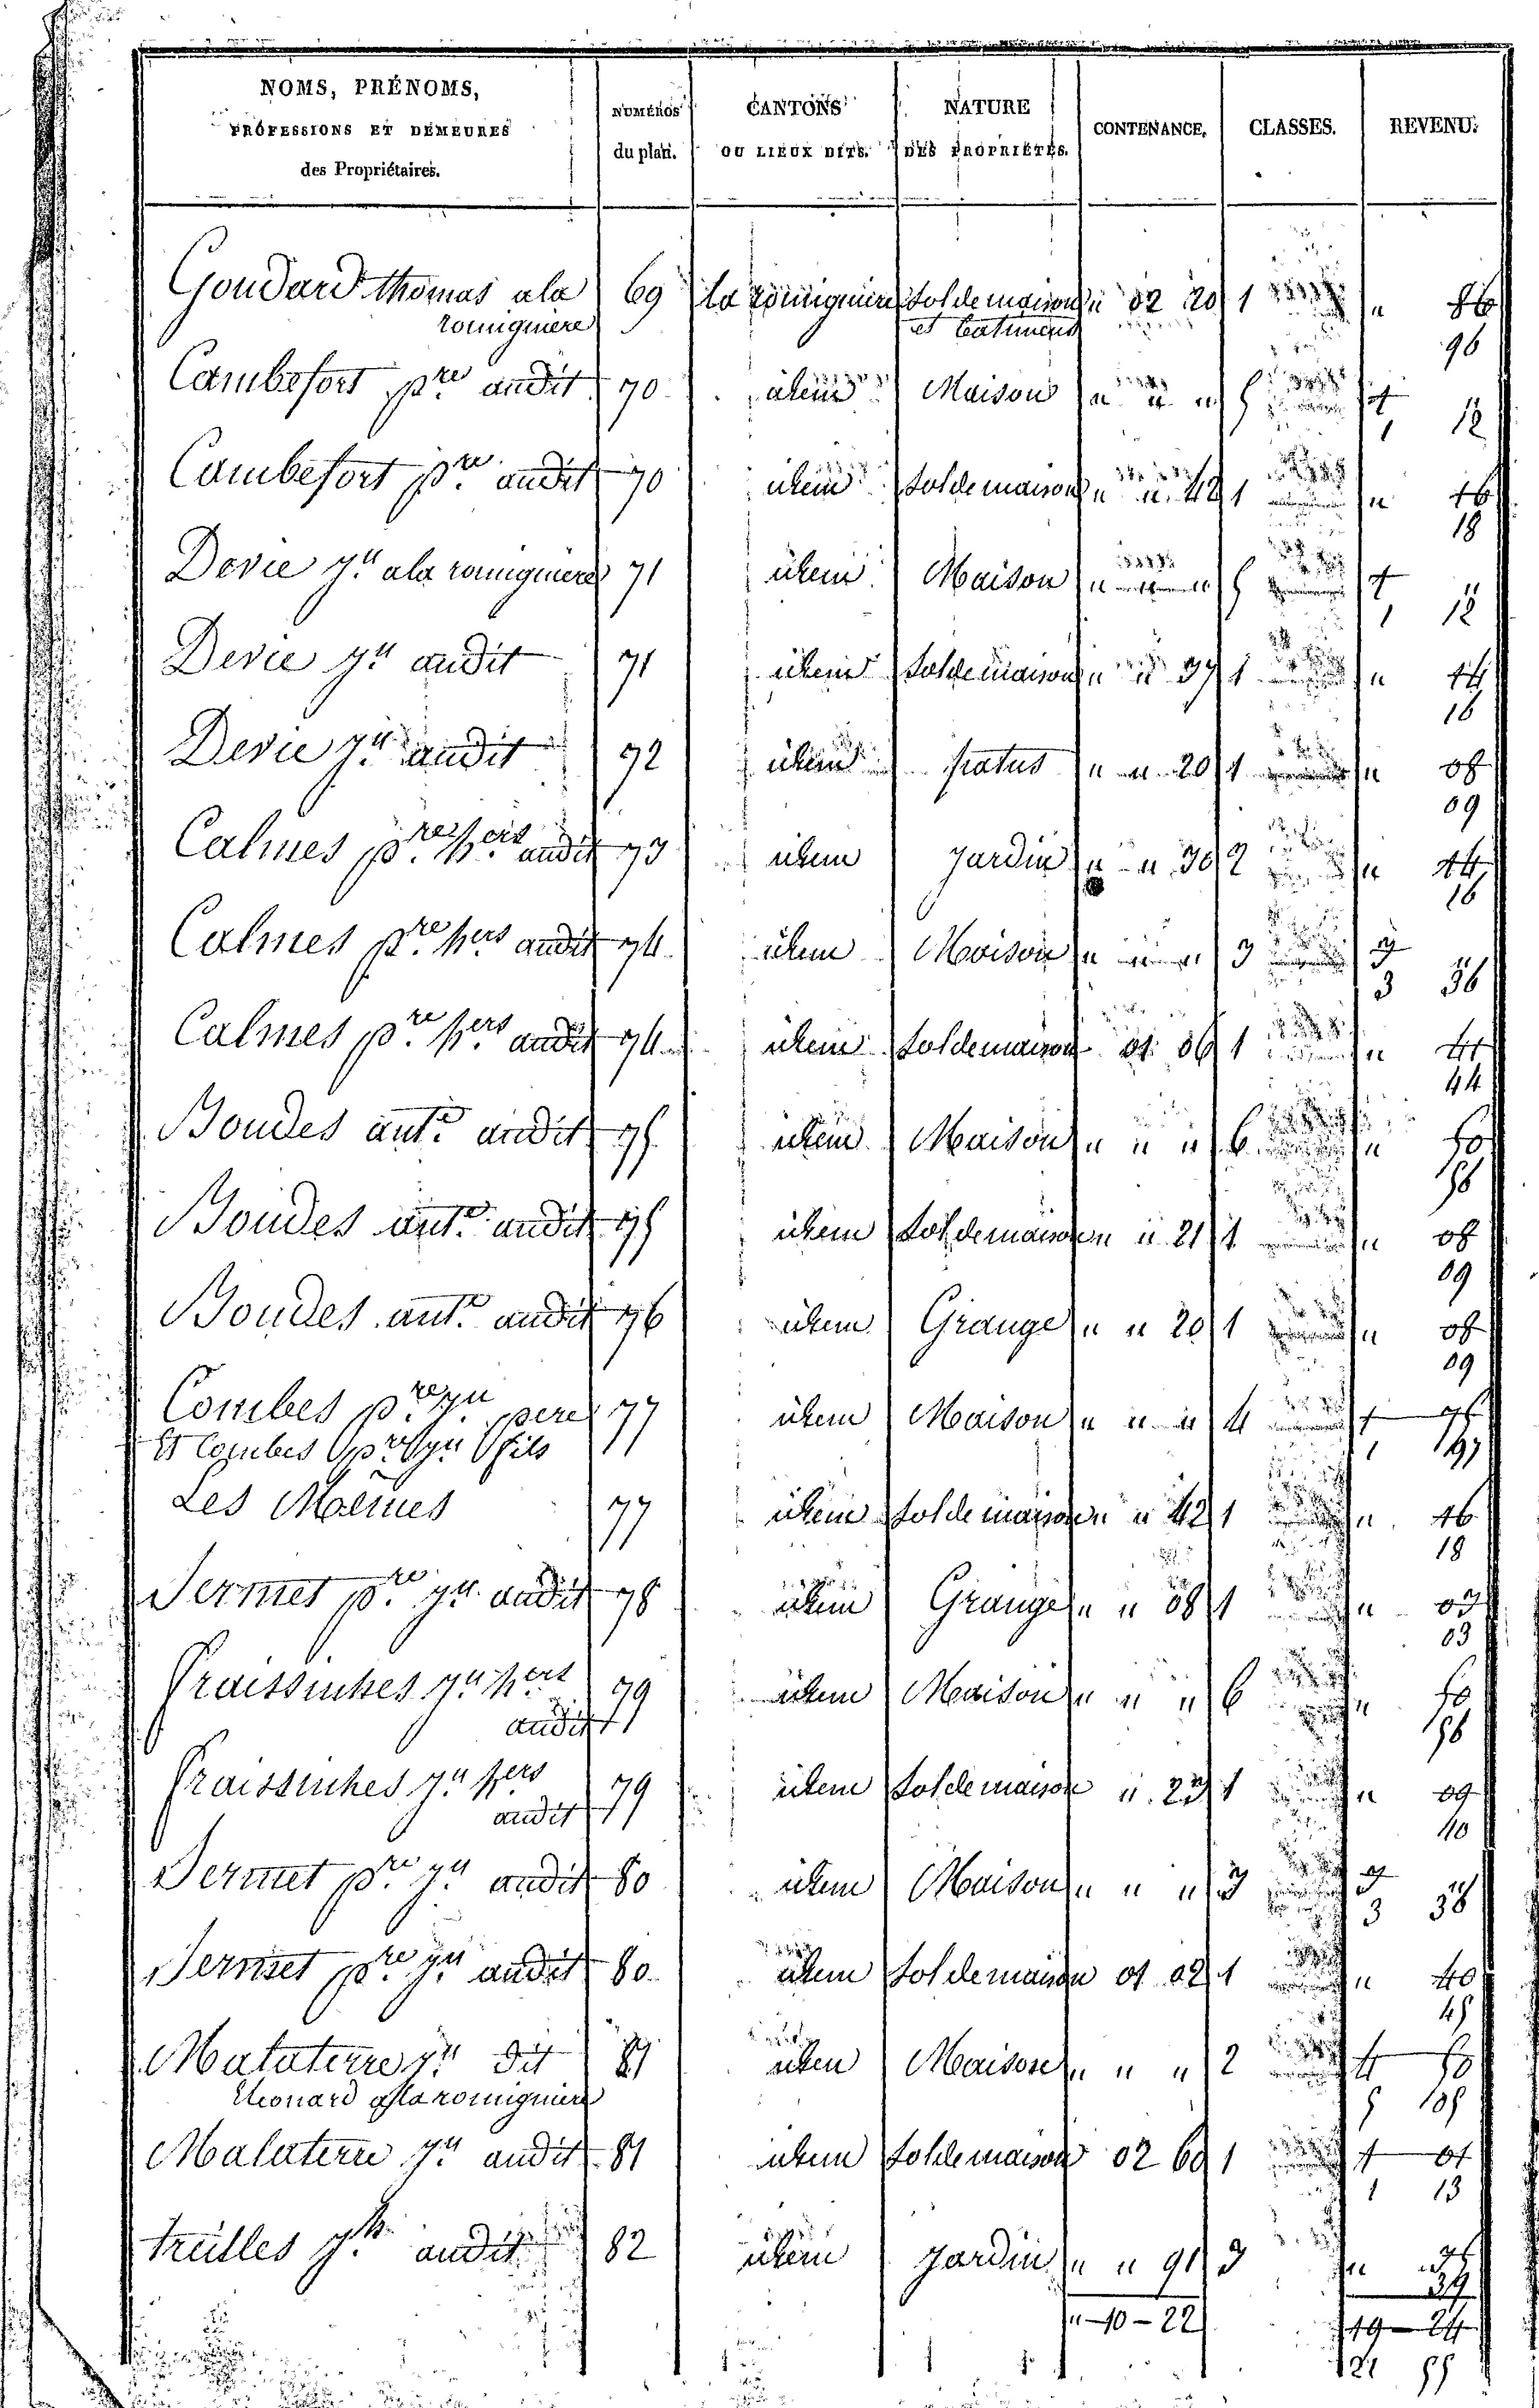 NOMS, PRÉNOMS,
PROFESSIONS ET DEMEURES
des Propriétaires.
NUMÉROS
du plan.
CANTONS
OU LIEUX DITS.
NATURE
DES PROPRIÉTÉS.
CONTENANCE.
CLASSES.
REVENU.
Goudard thomas ala 69 la romiguiere sol de maison " 02 20 1 " 86
romiguiere et batiment 96
Cambefort pre audit 70 idem Maison " " " 5 1
1 12
Cambefort pre audit 70 idem sol de maison " " 42 1 " 16
18
Devie jn ala romiguiere 71 idem Maison " " 5 1
1 12
Devie jn audit 71 idem sol de maison " " 37 1 " 14
16
Devie jn audit 72 idem patus " " 20 1 " 08
09
Calmes pre hers audit 73 idem jardin " " 30 2 " 14
16
Calmes pre hers audit 74 idem Maison " " " 3 3
3 36
Calmes pre hers audit 74 idem sol de maison 01 06 1 "
44
Boudes ante audit 75 idem Maison " " " 6 " 50
56
Boudes ante audit 75 idem sol de maison " " 21 1 " 08
09
Boudes ante audit 76 idem Grange " " 20 1 " 08
09
Combes pre jn pere 77 idem Maison " " " 4 1 75
Et Combes pre jn fils 1 97
Les Memes 77 idem sol de maison " " 42 1 " 16
18
Sermet pre jn audit 78 idem Grange " " 08 1 " 03
03
Fraissinhes jn hers 79 idem Maison " " " 6 " 50
audit 56
Fraissinhes jn hers 79 idem sol de maison " 23 1 " 09
audit 10
Sermet pre jn audit 80 idem Maison " " " 3 3
3 36
Sermet pre jn audit 80 idem sol de maison 01 02 1 " 40
45
Malaterre jn dit 81 idem Maison " " " 2 4 50
Leonard a la romiguiere 5 05
Malaterre jn audit 81 idem sol de maison 02 60 1 1 01
1 13
treilles audit 82 idem jardin " " 91 3 "
" 10 - 22 19 - 24
21 55